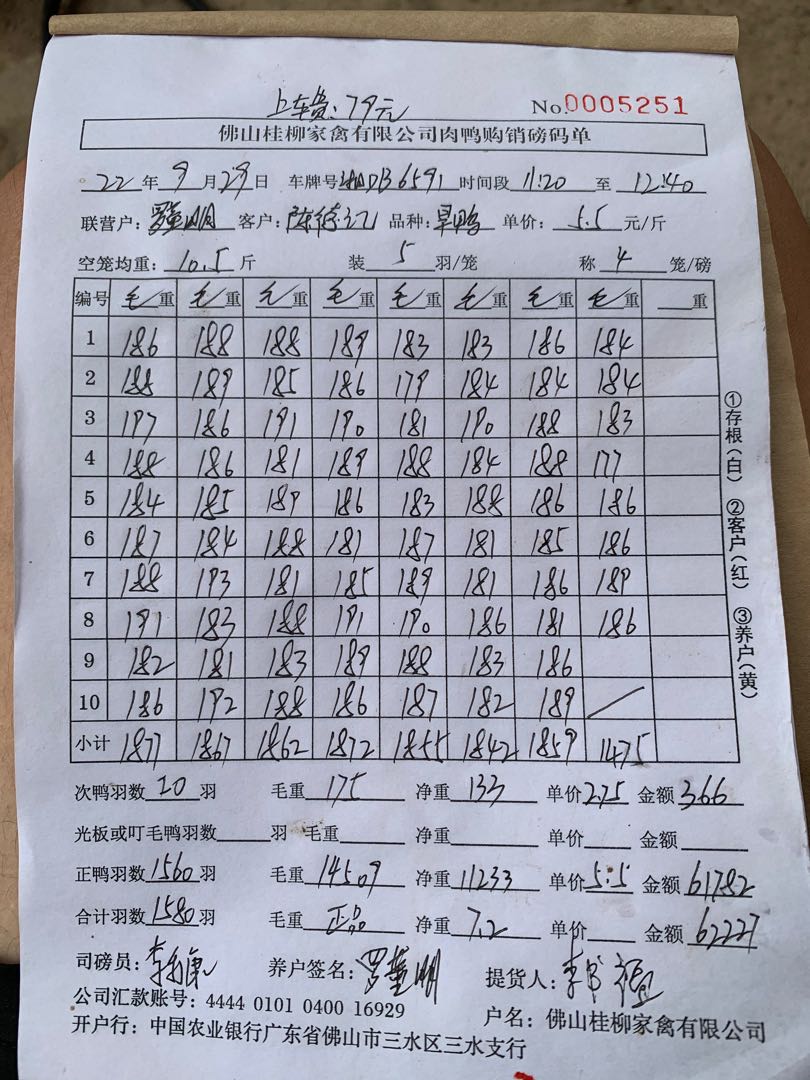 上车费：79元
No.0005251
佛山桂柳家禽有限公司肉鸭购销磅码单
22年9月29日 车牌号湘DB6591 时间段11:20至12:40
联营户：罗董明 客户：陈德记 品种：旱鸭 单价：5.5元/斤
空笼均重：10.5斤 装5羽/笼 称4笼/磅
编号 毛重 毛重 毛重 毛重 毛重 毛重 毛重 毛重 重
1 186 188 188 189 183 183 186 184
2 188 189 185 186 179 184 184 184
3 197 186 191 190 181 190 188 183
4 188 186 181 189 188 184 188 177
5 184 185 189 186 183 188 186 186
6 187 184 188 181 187 181 185 186
7 188 193 181 185 189 181 186 189
8 191 183 188 191 190 186 181 186
9 182 181 183 189 188 183 186
10 186 192 188 186 187 182 189 /
小计 1877 1867 1862 1872 1855 1842 1859 1475
次鸭羽数20羽 毛重175 净重133 单价2.75 金额366
光板或叮毛鸭羽数 羽 毛重 净重 单价 金额
正鸭羽数1560羽 毛重14509 净重11233 单价5.5 金额61782
合计羽数1580羽 毛重正品 净重7.2 单价 金额62227
司磅员： 养户签名：罗董明 提货人：
公司汇款账号：4444 0101 0400 16929
户名：佛山桂柳家禽有限公司
开户行：中国农业银行广东省佛山市三水区三水支行
①存根（白） ②客户（红） ③养户（黄）